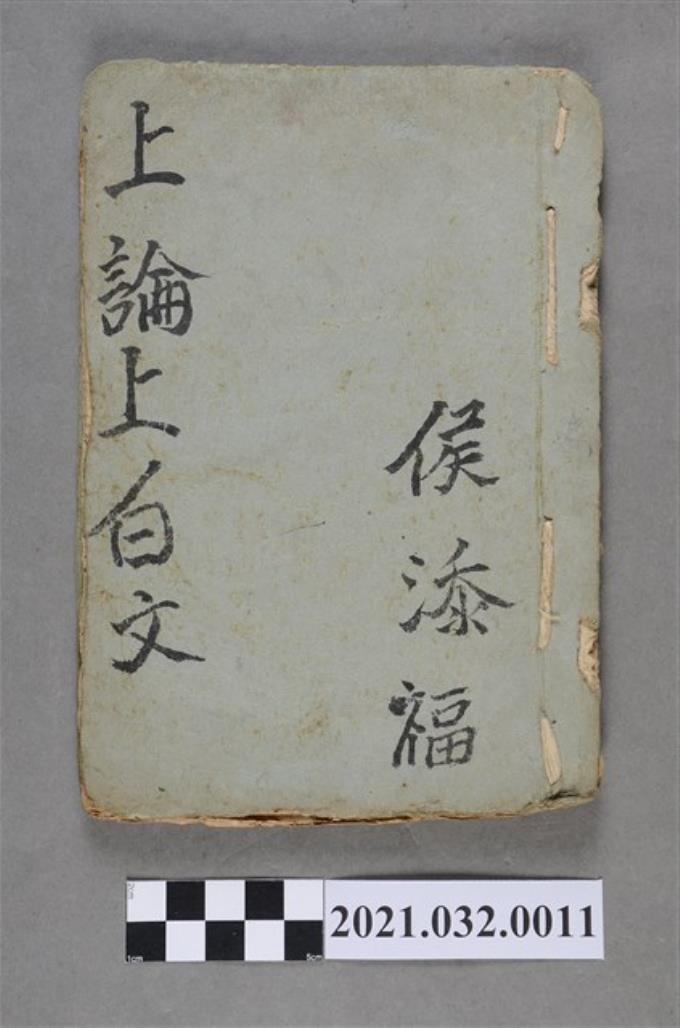 上論上白文
侯添福
2cm
1cm
5cm
2021.032.0011